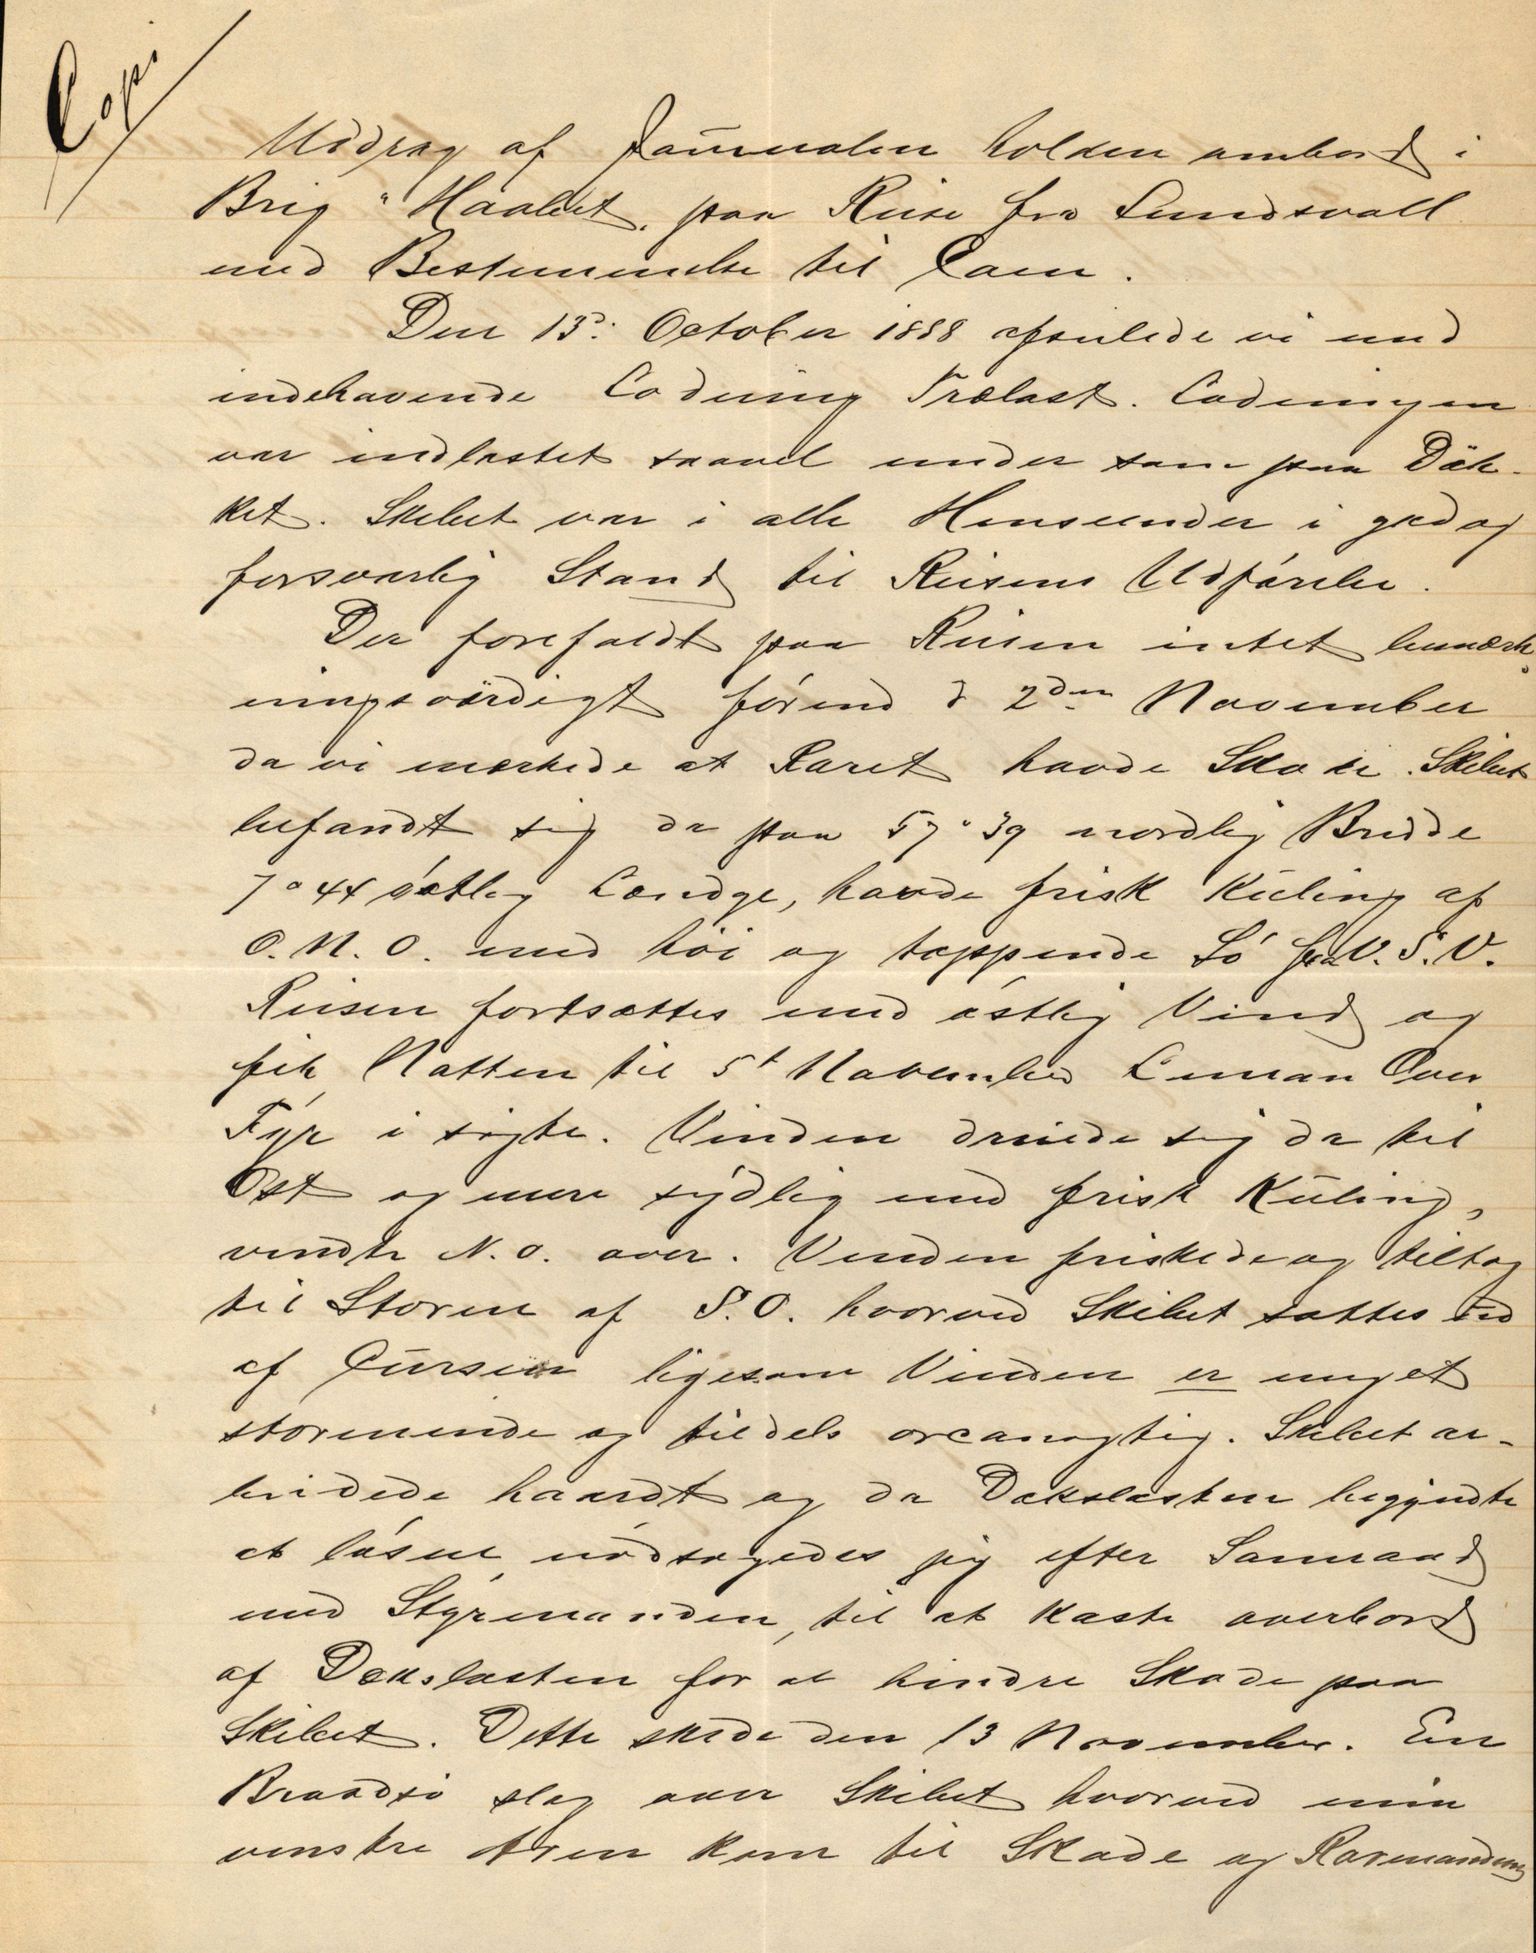 Copi
Uddrag af Journalen holden ombord i
Brig "Haabet" paa Reise fra Sundsvall
med Bestemmelse til Caen.
Den 15d: October 1888 afseilede vi med
indehavende Ladning Trælast. Ladningen
var indlastet saavel under som paa Dæk-
ket. Skibet var i alle Henseender i god og
forsvarlig Stand til Reisens Udførelse.
Der forefaldt paa Reisen intet bemærk-
ningsværdigt førend d 2den November
da vi mærkede at Roret havde Skade. Skibet
befandt sig da paa 57° 39 nordlig Bredde
7° 44 østlig Længde, havde frisk Kuling af
O.N.O. med høi og toppende Sø fra V.S.V.
Reisen fortsættes med østlig Vind og
fik Natten til 5t November Leman Ower
Fyr i sigte. Vinden dreiede sig da til
Ost og mere sydlig med frisk Kuling,
vendte N.O. over. Vinden friskede og tiltog
til Storm af S.O. hvorved Skibet sattes ud
af Cursen ligesom Vinden er meget
stormende og tildels orcanagtig. Skibet ar-
beidede haardt og da Dækslasten begyndte
at løsne nødsagedes jeg efter Samraad
med Styrmanden, til at kaste overbord
af Dækslasten for at hindre Skade paa
Skibet. Dette skede den 13 November. En
Braadsø slog over Skibet hvorved min
venstre Arm kom til Skade og Rormanden